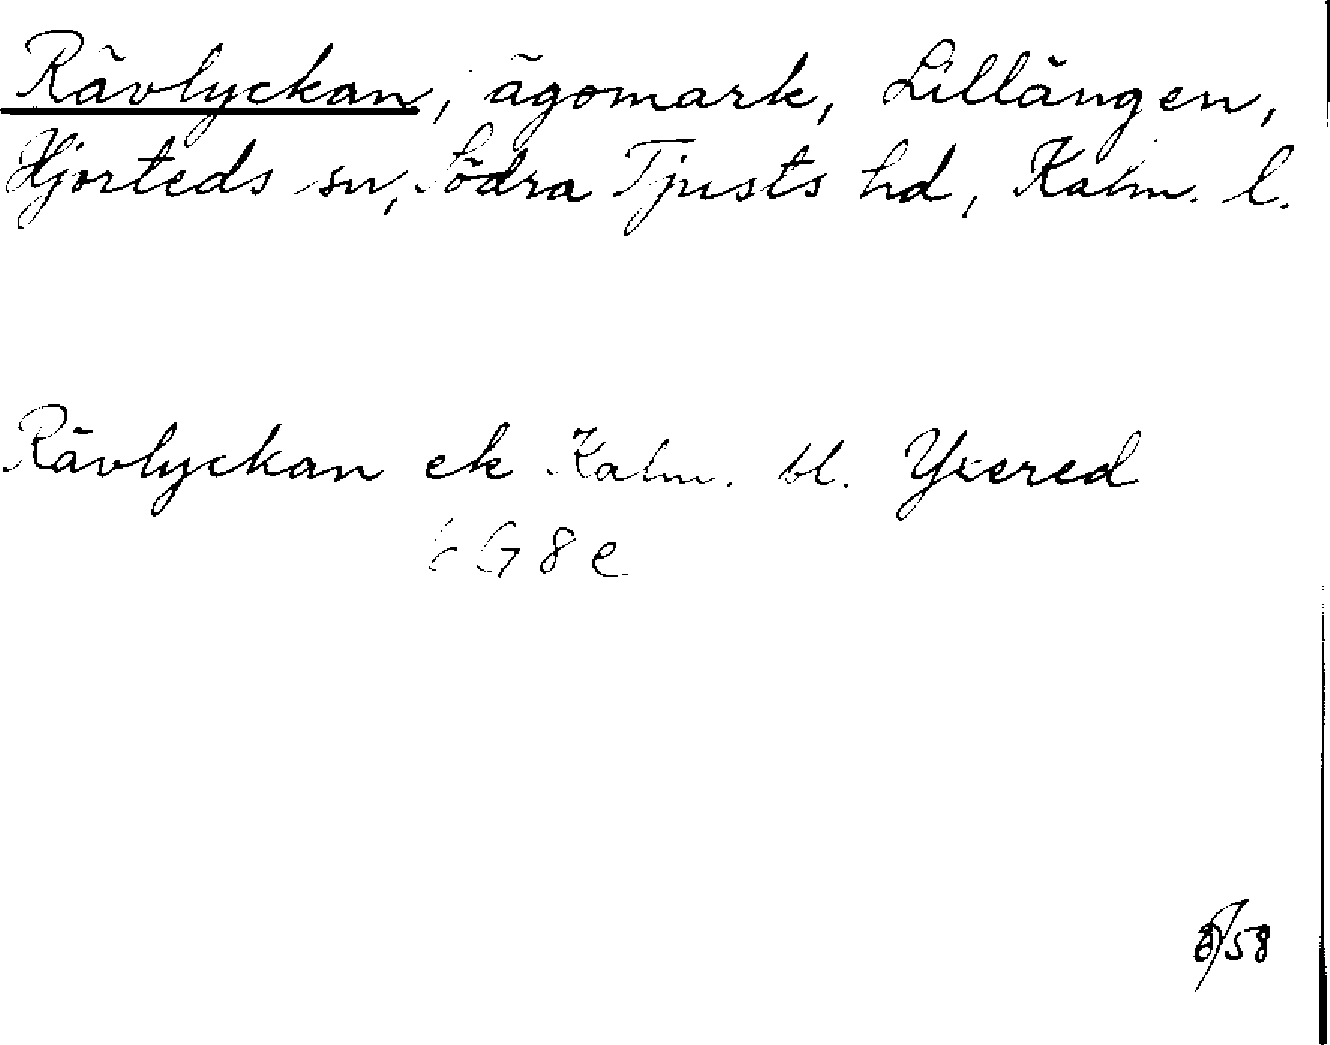 Rävlyckan, ägomark, Lillängen,
Hjorteds sn, Södra Tjusts hd, Kalm. l.
Rävlyckan ek Kalm. bl. Yxered
6 G 8 e